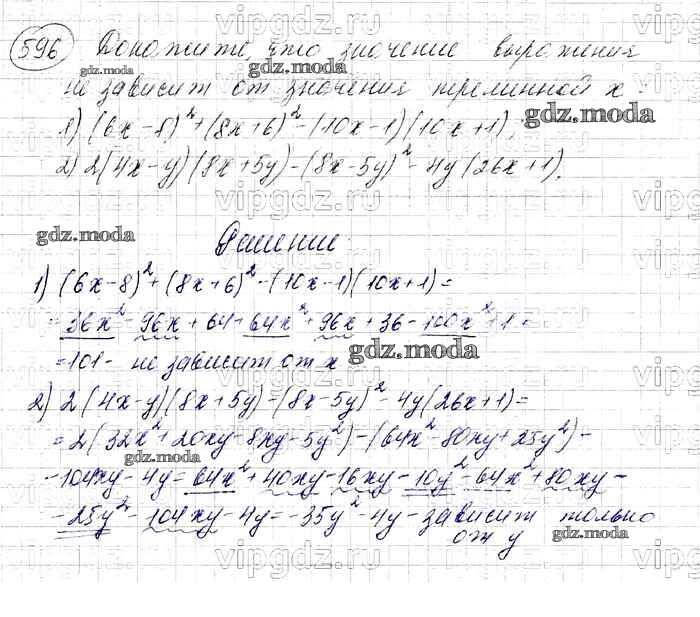 596 Докажите, что значение выражения
не зависит от значения переменной x :
1) (6x-8)²+(8x+6)²-(10x-1)(10x+1),
2) 2(4x-y)(8x+5y)-(8x-5y)²-4y(26x+1).
Решение
1) (6x-8)²+(8x+6)²-(10x-1)(10x+1)=
=36x²-96x+64+64x²+96x+36-100x²+1=
=101- не зависит от x
2) 2(4x-y)(8x+5y)-(8x-5y)²-4y(26x+1)=
=2(32x²+20xy-8xy-5y²)-(64x²-80xy+25y²)-
-104xy-4y=64x²+40xy-16xy-10y²-64x²+80xy-
-25y²-104xy-4y=-35y²-4y-зависит только
от y
gdz.moda
vipgdz.ru